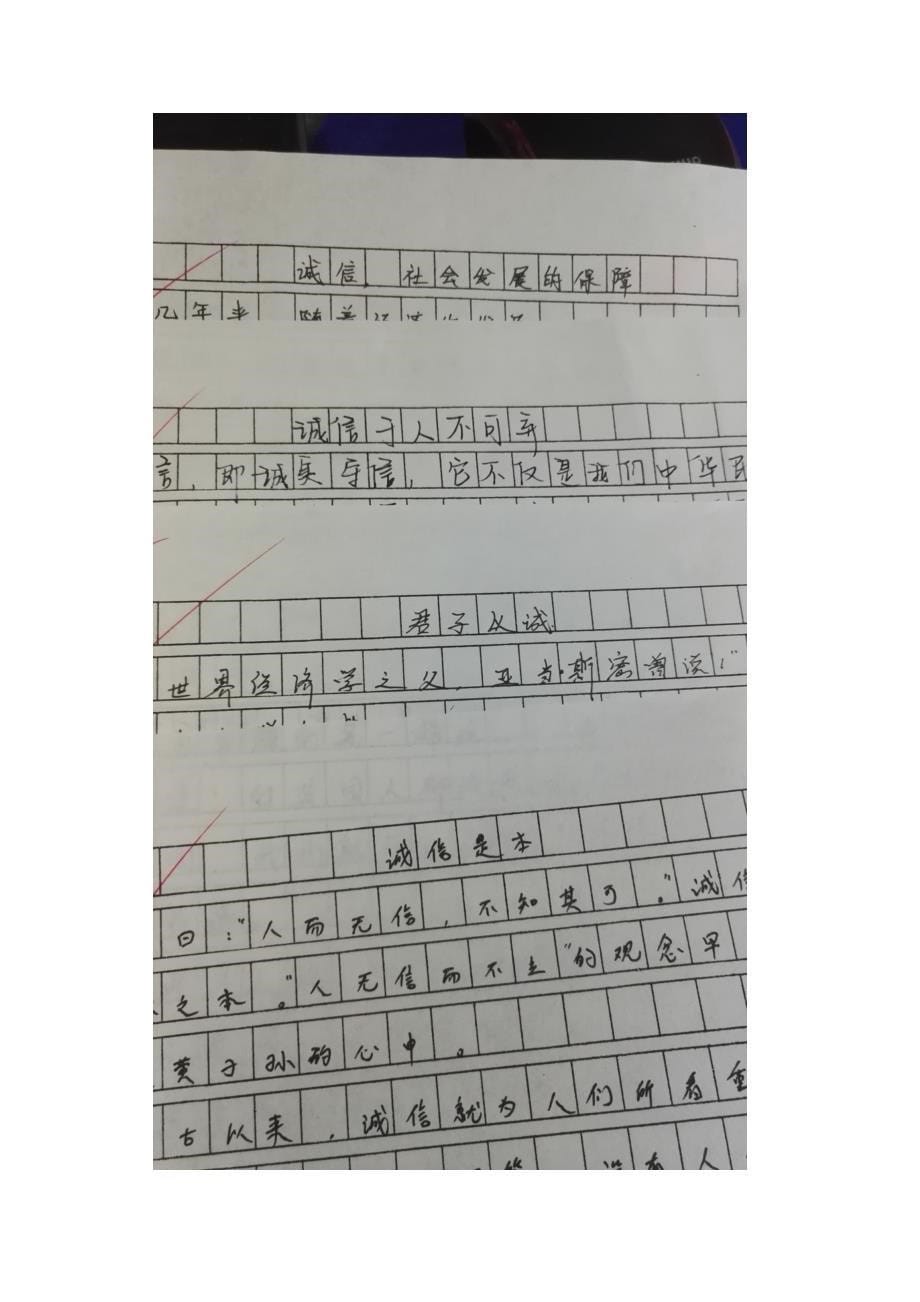 诚信，社会发展的保障
几年来
诚信于人不可弃
言，即诚实守信，它不仅是我们中华民
君子必诚
世界经济学之父，亚当·斯密曾说："
诚信是本
曰："人而无信，不知其可。"诚信
之本。"人无信而不立"的观念早
黄子孙的心中。
古以来，诚信就为人们所看重